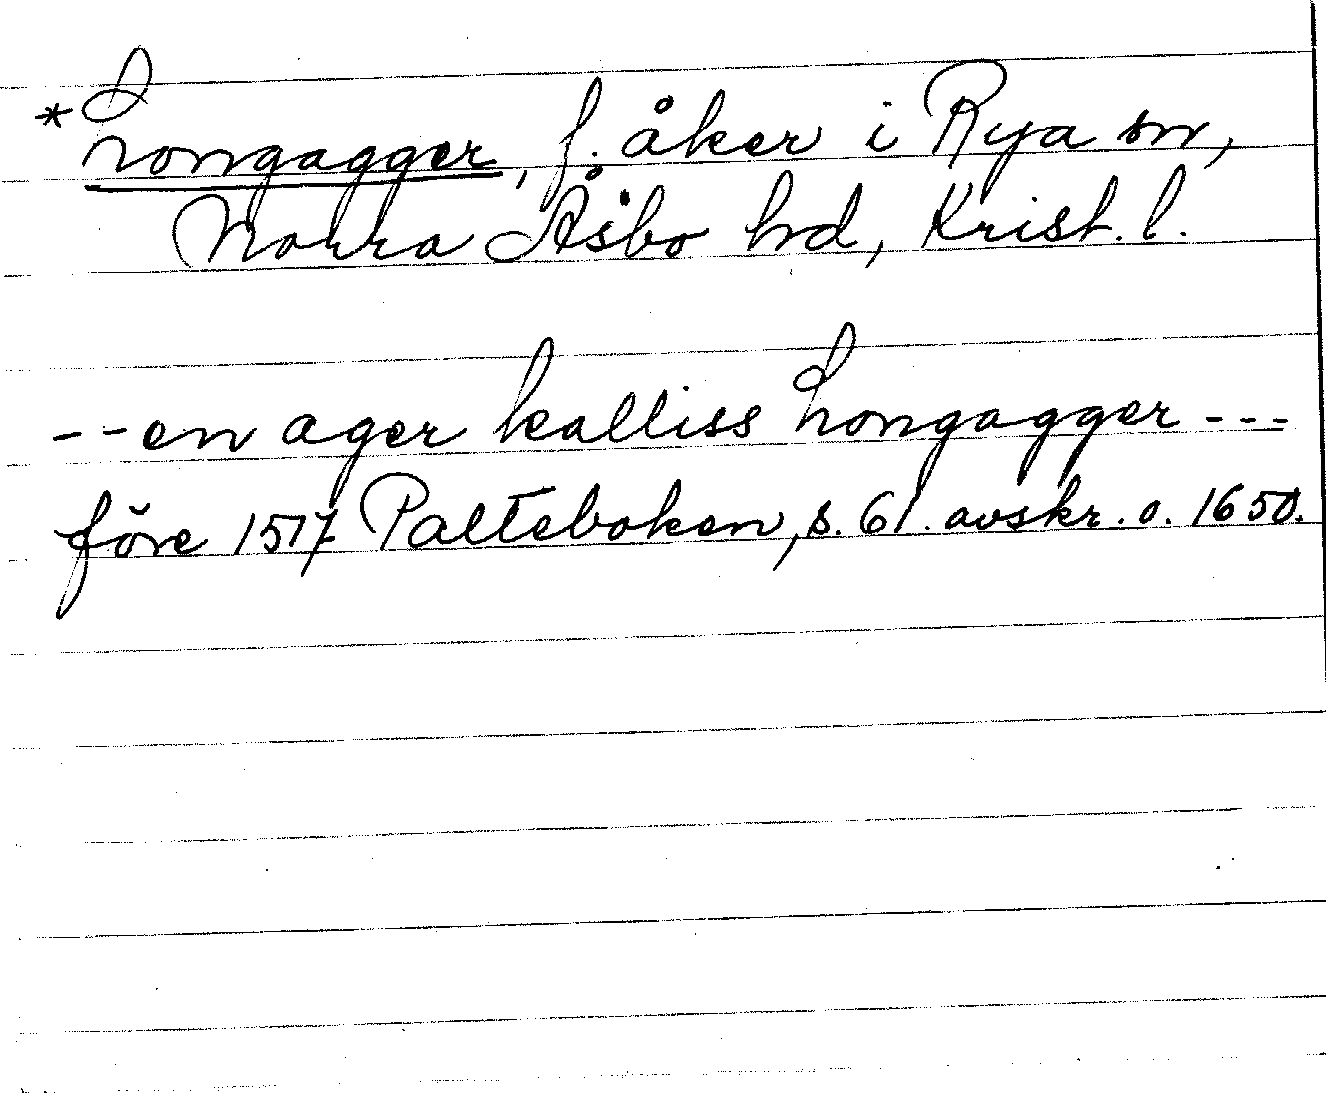 *Longagger, f. åker i Rya sn,
Norra Åsbo hd, Krist. l.
--en ager kalliss Longagger---
före 1517 Palteboken, s. 61. avskr. o. 1650.